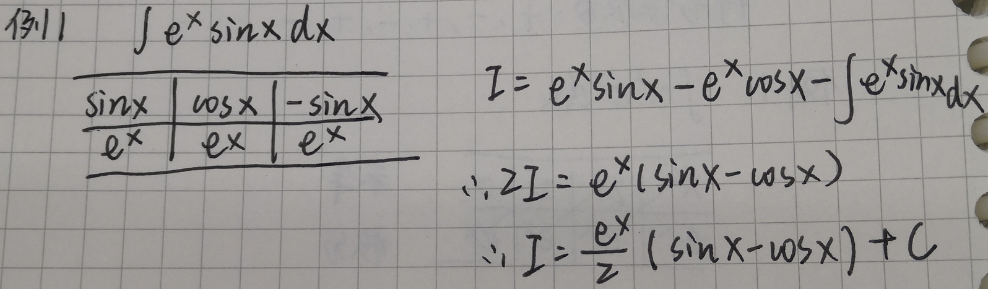 例1 ∫ e^x sinx dx
sinx | cosx | -sinx
e^x | e^x | e^x
I = e^x sinx - e^x cosx - ∫ e^x sinx dx
∴ 2I = e^x (sinx - cosx)
∴ I = e^x/2 (sinx - cosx) + C